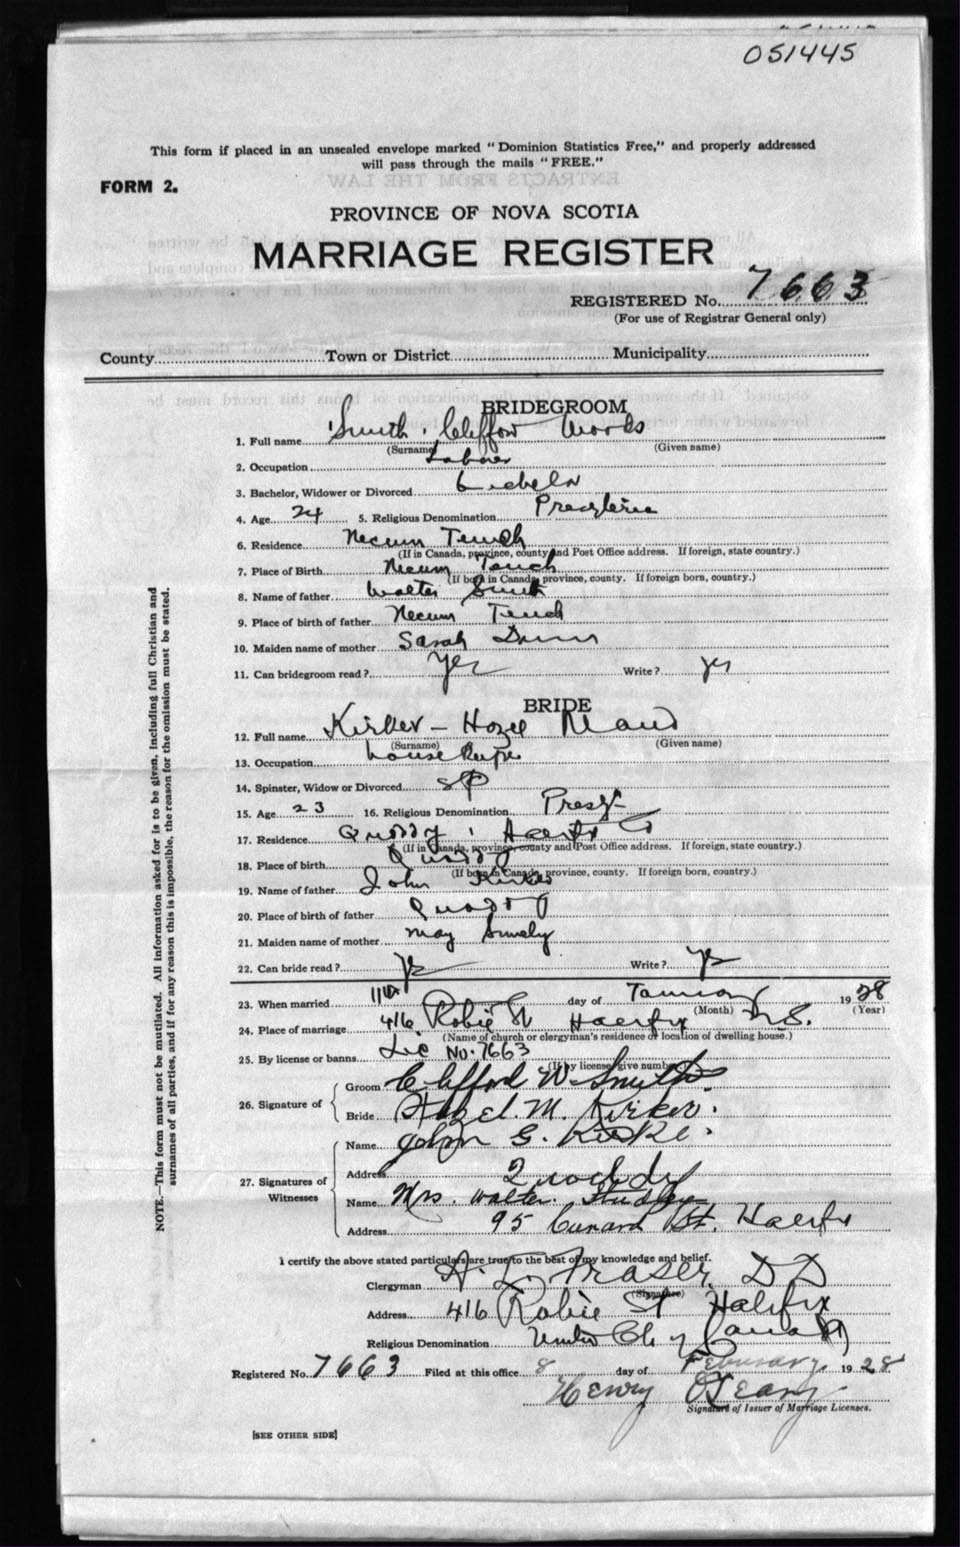 051445
This form if placed in an unsealed envelope marked "Dominion Statistics Free," and properly addressed
will pass through the mails "FREE."
FORM 2.
PROVINCE OF NOVA SCOTIA
MARRIAGE REGISTER
REGISTERED No. 7663
(For use of Registrar General only)
County Town or District Municipality
BRIDEGROOM
1. Full name Smith, Clifford
(Surname) (Given name)
2. Occupation Labourer
3. Bachelor, Widower or Divorced Bachelor
4. Age 24 5. Religious Denomination Presbyterian
6. Residence Necum Teuch
(If in Canada, province, county and Post Office address. If foreign, state country.)
7. Place of Birth Necum Teuch
(If born in Canada, province, county. If foreign born, country.)
8. Name of father Walter Smith
9. Place of birth of father Necum Teuch
10. Maiden name of mother Sarah
11. Can bridegroom read? Yes Write? Yes
BRIDE
12. Full name Kirker - Hazel Maud
(Surname) (Given name)
13. Occupation housekeeper
14. Spinster, Widow or Divorced Sp
15. Age 23 16. Religious Denomination Presy
17. Residence Quoddy, Halifax Co
(If in Canada, province, county and Post Office address. If foreign, state country.)
18. Place of birth Quoddy
(If born in Canada, province, county. If foreign born, country.)
19. Name of father John Kirker
20. Place of birth of father Quoddy
21. Maiden name of mother May
22. Can bride read? Yes Write? Yes
23. When married 11th day of January 1928
(Month) (Year)
24. Place of marriage 416 Robie St Halifax N.S.
(Name of church or clergyman's residence or location of dwelling house.)
25. By license or banns Lic No. 7663
(If by license, give number.)
26. Signature of
Groom Clifford W. Smith
Bride Hazel. M. Kirker.
27. Signatures of Witnesses
Name John G.
Address Quoddy
Name Mrs. Walter. Studley
Address 95 Cunard St. Halifax
I certify the above stated particulars are true to the best of my knowledge and belief.
Clergyman A. L. Fraser DD
(Signature)
Address 416 Robie St Halifax
Religious Denomination United Ch of Canada
Registered No. 7663 Filed at this office 8 day of February 1928
Henry O'Leary
Signature of Issuer of Marriage Licenses.
[SEE OTHER SIDE]
NOTE.—This form must not be mutilated. All information asked for is to be given, including full Christian and
surnames of all parties, and if for any reason this is impossible, the reason for the omission must be stated.